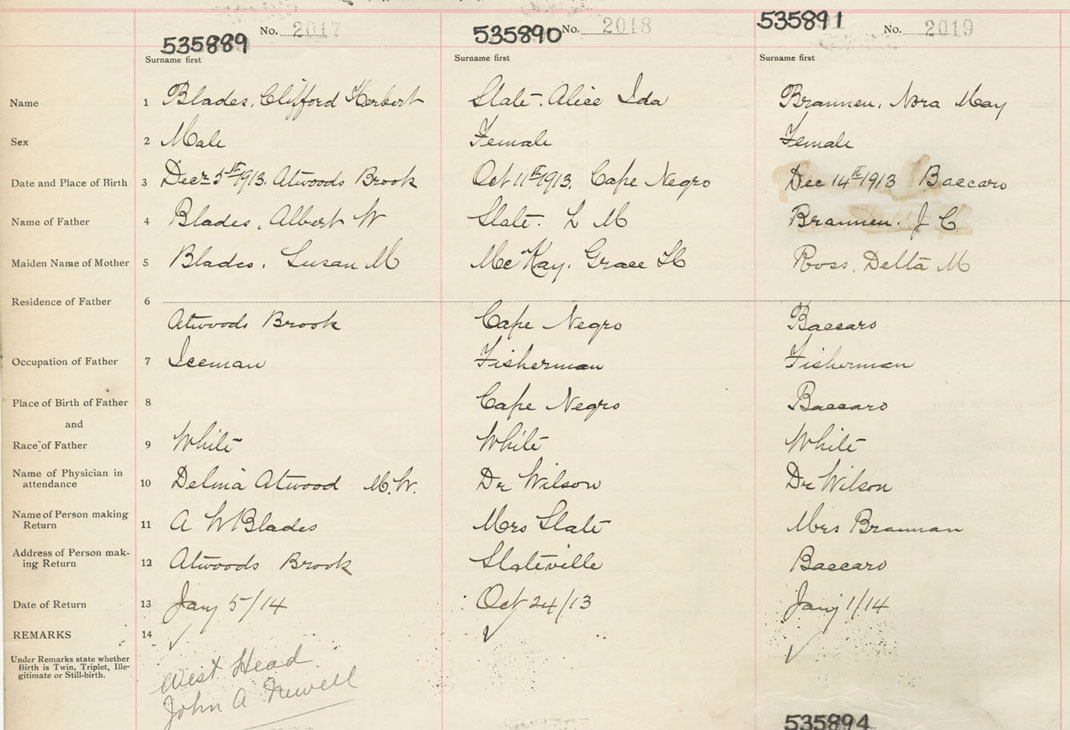 535889 No. 2017 535890 No. 2018 535891 No. 2019
Surname first Surname first Surname first
Name 1 Blades, Clifford Herbert Slate. Alice Ida Brannen, Nora May
Sex 2 Male Female Female
Date and Place of Birth 3 Decr 5th 1913. Atwoods Brook Oct 11th 1913. Cape Negro Dec 14th 1913 Baccaro
Name of Father 4 Blades, Albert W Slate. L M Brannen. J C
Maiden Name of Mother 5 Blades. Susan M McKay. Grace Ross. Delta M
Residence of Father 6
Atwoods Brook Cape Negro Baccaro
Occupation of Father 7 Iceman Fisherman Fisherman
Place of Birth of Father 8 Cape Negro Baccaro
and
Race of Father 9 White White White
Name of Physician in
attendance 10 Delina Atwood M.W. Dr Wilson Dr Wilson
Name of Person making
Return 11 A W Blades Mrs Slate Mrs Brannan
Address of Person mak-
ing Return 12 Atwoods Brook Slateville Baccaro
Date of Return 13 Jany 5/14 Oct 24/13 Jany 1/14
REMARKS 14
Under Remarks state whether
Birth is Twin, Triplet, Ille-
gitimate or Still-birth.
West Head
John A Newell
535894